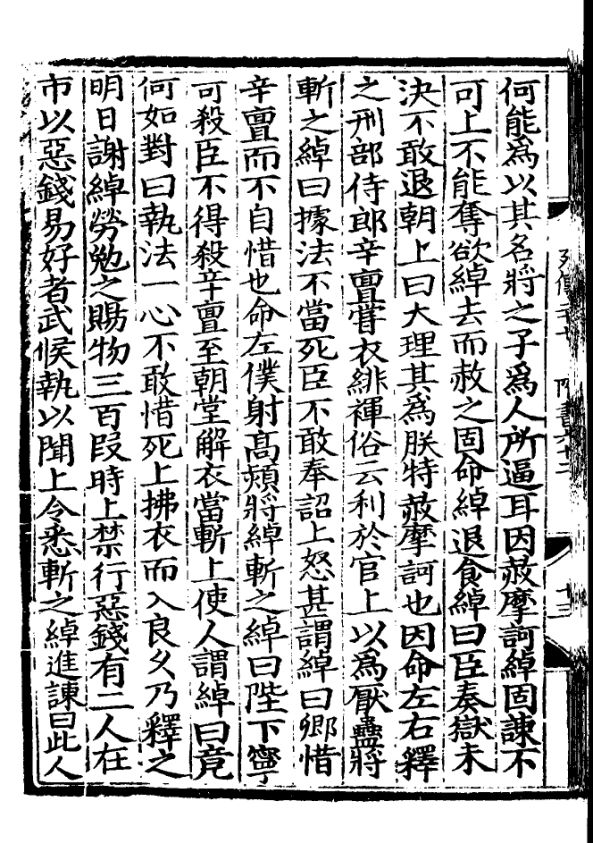 何能為以其名將之子爲人所逼耳因赦摩訶綽固諫不
可上不能奪欲綽去而赦之固命綽退食綽曰臣奏獄未
決不敢退朝上曰大理其爲朕特赦摩訶也因命左右釋
之刑部侍郎辛亶甞衣緋褌俗云利於官上以爲厭蠱將
斬之綽曰據法不當死臣不敢奉詔上怒甚謂綽曰卿惜
辛亶而不自惜也命左僕射高熲將綽斬之綽曰陛下寧
可殺臣不得殺辛亶至朝堂解衣當斬上使人謂綽曰竟
何如對曰執法一心不敢惜死上拂衣而入良久乃釋之
明日謝綽勞勉之賜物三百段時上禁行惡錢有二人在
市以惡錢易好者武候執以聞上令悉斬之綽進諫曰此人
列傳二十七 隋書六十二
十三